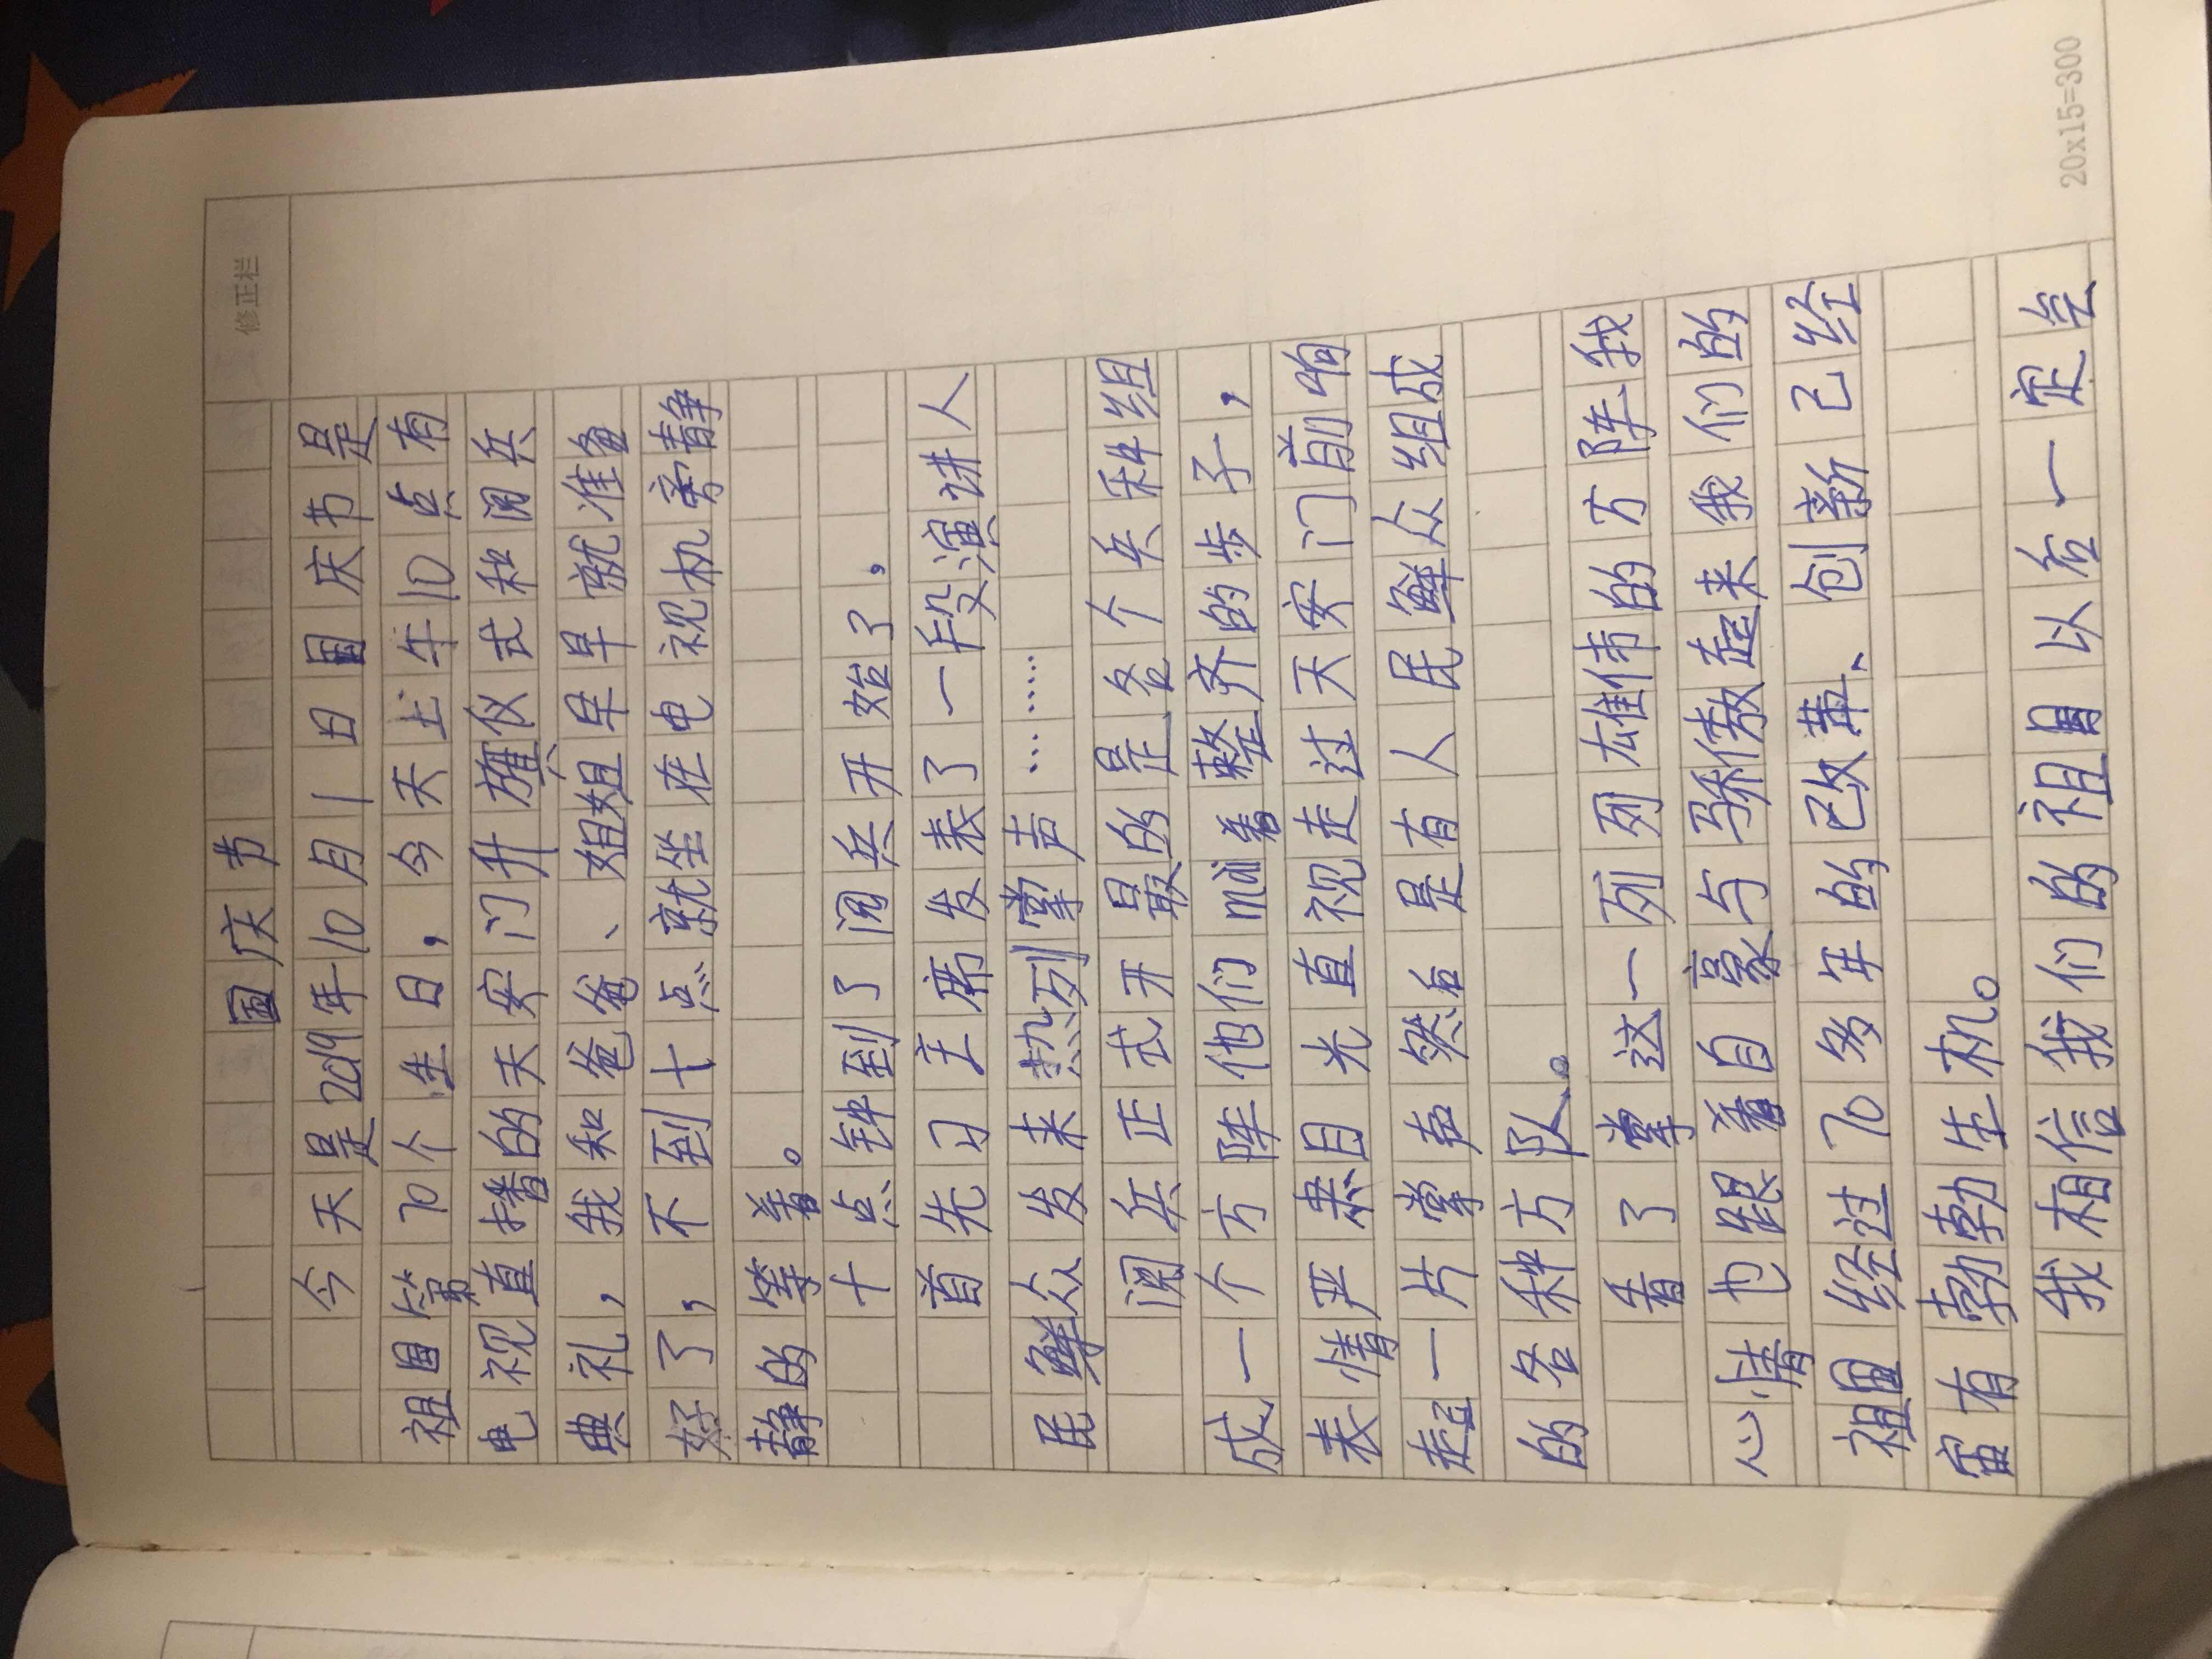 修正栏
国庆节
今天是2019年10月1日国庆节是
祖国第70个生日，今天上午10点有
电视直播的天安门升旗仪式和阅兵
典礼，我和爸爸、姐姐早早就准备
好了，不到十点就坐在电视机旁静
静的等着。
十点钟到了阅兵开始了，
首先习主席发表了一段演讲人
民群众发来热列掌声……
阅兵正式开最的是各个兵种组
成一个方阵他们mai着整齐的步子，
表情严肃目光直视走过天安门前响
起一片掌声然后是有人民群众组成
的各种方队。
看了掌这一列列雄伟的方阵我
心情也跟着自豪与骄傲起来我们的
祖国经过70多年的改革、创新已经
富有勃勃生机。
我相信我们的祖国以后一定会
20x15=300